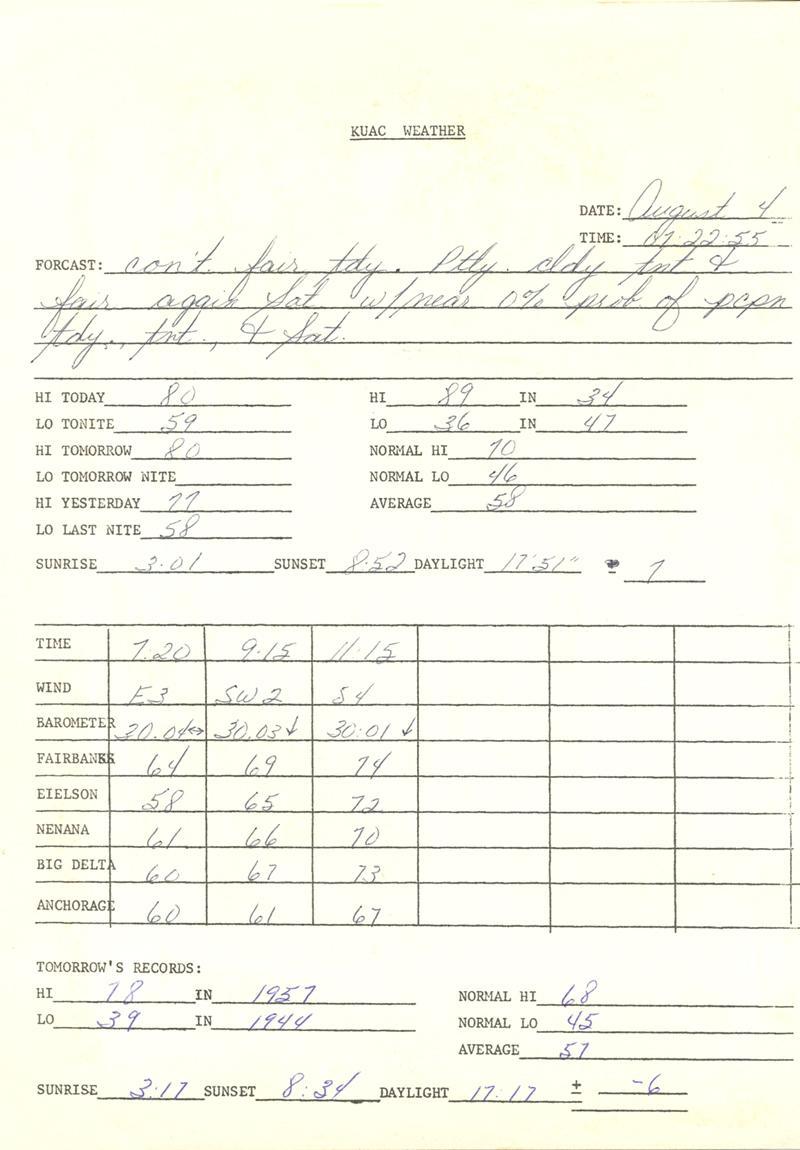 KUAC WEATHER
DATE: August 4
TIME: 07:22:55
FORCAST: con't. fair, tdy. Ptly. cldy tnt &
fair aggin Sat w/near 0% prob. of pcpn
tdy., tnt., & Sat.
HI TODAY 80 HI 89 IN 34
LO TONITE 59 LO 36 IN 47
HI TOMORROW 80 NORMAL HI 70
LO TOMORROW NITE NORMAL LO 46
HI YESTERDAY 77 AVERAGE 58
LO LAST NITE 58
SUNRISE 3:01 SUNSET 8:52 DAYLIGHT 17'51" 7
TIME 7:20 9:15 11:15
WIND E3 SW2 S4
BAROMETER 30.04↔ 30.03↓ 30:01↓
FAIRBANKS 64 69 74
EIELSON 58 65 72
NENANA 61 66 70
BIG DELTA 60 67 73
ANCHORAGE 60 61 67
TOMORROW'S RECORDS:
HI 78 IN 1957 NORMAL HI 68
LO 39 IN 1944 NORMAL LO 45
AVERAGE 57
SUNRISE 3:17 SUNSET 8:34 DAYLIGHT 17:17 ± -6